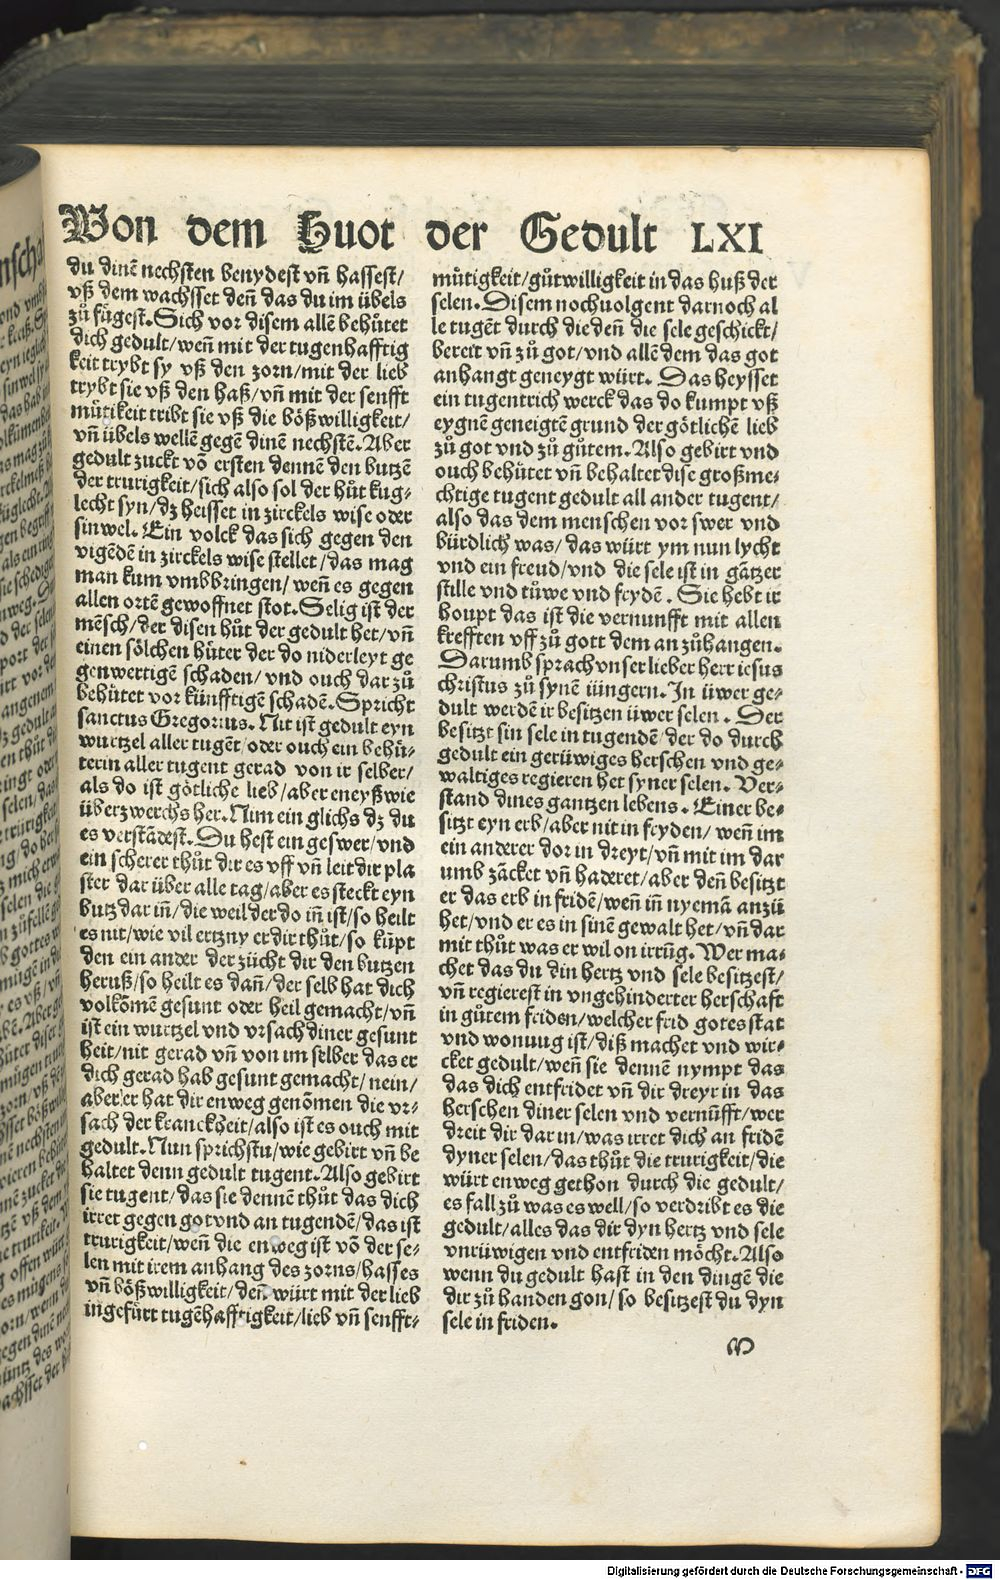 Von dem Huot der Gedult LXI
du dinē nechsten benydest vn̄ hassest/
vß dem wachsset den̄ das du im übels
zů fügest. Sich vor disem allē behütet
dich gedult/wen̄ mit der tugenhafftig
keit trybt sy vß den zorn/mit der lieb
trybt sie vß den haß/vn̄ mit der senfft
mütikeit tribt sie vß die bößwilligkeit/
vn̄ übels wellē gegē dinē nechstē. Aber
gedult zuckt vō ersten dennē den butzē
der trurigkeit/sich also sol der hůt kug-
lecht syn/dz heisset in zirckels wise oder
sinwel. Ein volck das sich gegen den
vigēdē in zirckels wise stellet/das mag
man kum vmbbringen/wen̄ es gegen
allen ortē gewoffnet stot. Selig ist der
mēsch/der disen hůt der gedult het/vn̄
einen sölchen hüter der do niderleyt ge
genwertigē schaden/vnd ouch dar zů
behütet vor künfftigē schadē. Spricht
sanctus Gregorius. Nit ist gedult eyn
wurtzel aller tugēt/oder ouch ein behü-
terin aller tugent gerad von ir selber/
als do ist götliche lieb/aber eneyß wie
überzwerchs her. Nim ein glichs dz du
es verstādest. Du hest ein geswer/vnd
ein scherer thůt dir es vff vn̄ leit dir pla
ster dar über alle tag/aber es steckt eyn
butz dar in̄/die weil der do in̄ ist/so heilt
es nit/wie vil ertzny er dir thůt/so kūpt
den ein ander der zücht dir den butzen
heruß/so heilt es dan̄/der selb hat dich
volkōmē gesunt oder heil gemacht/vn̄
ist ein wurtzel vnd vrsach diner gesunt
heit/nit gerad vn̄ von im selber das er
dich gerad hab gesunt gemacht/nein/
aber er hat dir enweg genōmen die vr-
sach der kranckheit/also ist es ouch mit
gedult. Nun sprichstu/wie gebirt vn̄ be
haltet denn gedult tugent. Also gebirt
sie tugent/das sie dennē thůt das dich
irret gegen got vnd an tugendē/das ist
trurigkeit/wen̄ die enweg ist vō der se-
len mit irem anhang des zorns/hasses
vn̄ bößwilligkeit/den̄ würt mit der lieb
ingefürt tugēhafftigkeit/lieb vn̄ senfft-
můtigkeit/gůtwilligkeit in das huß der
selen. Disem nochuolgent darnoch al
le tugēt durch die den̄ die sele geschickt/
bereit vn̄ zů got/vnd allē dem das got
anhangt geneygt würt. Das heysset
ein tugentrich werck das do kumpt vß
eygnē geneigtē grund der götlichē lieb
zů got vnd zů gůtem. Also gebirt vnd
ouch behütet vn̄ behaltet dise großme-
chtige tugent gedult all ander tugent/
also das dem menschen vor swer vnd
bürdlich was/das würt ym nun lycht
vnd ein freud/vnd die sele ist in gātzer
stille vnd růwe vnd frydē. Sie hebt ir
houpt das ist die vernunfft mit allen
krefften vff zů gott dem an zůhangen.
Darumb sprach vnser lieber herr iesus
christus zů synē iüngern. In üwer ge-
dult werdē ir besitzen üwer selen. Der
besitzt sin sele in tugendē/der do durch
gedult ein gerüwiges herschen vnd ge-
waltiges regieren het syner selen. Ver-
stand dines gantzen lebens. Einer be-
sitzt eyn erb/aber nit in fryden/wen̄ im
ein anderer dor in dreyt/vn̄ mit im dar
umb zācket vn̄ haderet/aber den̄ besitzt
er das erb in fridē/wen̄ in̄ nyemā anzü
het/vnd er es in sinē gewalt het/vn̄ dar
mit thůt was er wil on irrūg. Wer ma-
chet das du din hertz vnd sele besitzest/
vn̄ regierest in vngehinderter herschafft
in gůtem friden/welcher frid gotes stat
vnd wonuug ist/diß machet vnd wir-
cket gedult/wen̄ sie dennē nympt das
das dich entfridet vn̄ dir dreyr in das
herschen diner selen vnd vernūfft/wer
dreit dir dar in/was irret dich an fridē
dyner selen/das thůt die trurigkeit/die
würt enweg gethon durch die gedult/
es fall zů was es well/so verdribt es die
gedult/alles das dir dyn hertz vnd sele
vnrüwigen vnd entfriden möcht. Also
wenn du gedult hast in den dingē die
dir zů handen gon/so besitzest du dyn
sele in friden.
M
Digitalisierung gefördert durch die Deutsche Forschungsgemeinschaft - DFG